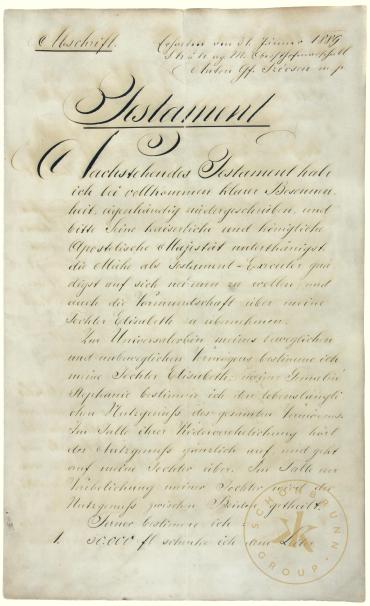 Abschrift.
Gesehen am 31. Jänner 1889
Anton Gf. Szécsen m. p.
Testament
Nachstehendes Testament habe
ich bei vollkommen klarer Besonnen-
heit eigenhändig niedergeschrieben, und
bitte Seine kaiserliche und königliche
Apostolische Majestät unterthänigst,
die Mühe als Testament-Executor gnä
digst auf sich nehmen zu wollen und
auch die Vormundschaft über meine
Tochter Elisabeth zu übernehmen.
Zur Universalerbin meines beweglichen
und unbeweglichen Vermögens bestimme ich
meine Tochter Elisabeth, meine Gemalin
Stephanie bestimme ich den lebenslängli
chen Nutzgenuß des gesamten Vermögens.
Im Falle ihrer Wiederverehelichung hört
der Nutzgenuß gänzlich auf und geht
auf meine Tochter über. Im Falle der
Verehelichung meiner Tochter wird der
Nutzgenuß zwischen Beiden getheilt.
Ferner bestimme ich:
1. 50.000 fl schenke ich dem
SCHÖNBRUNN GROUP